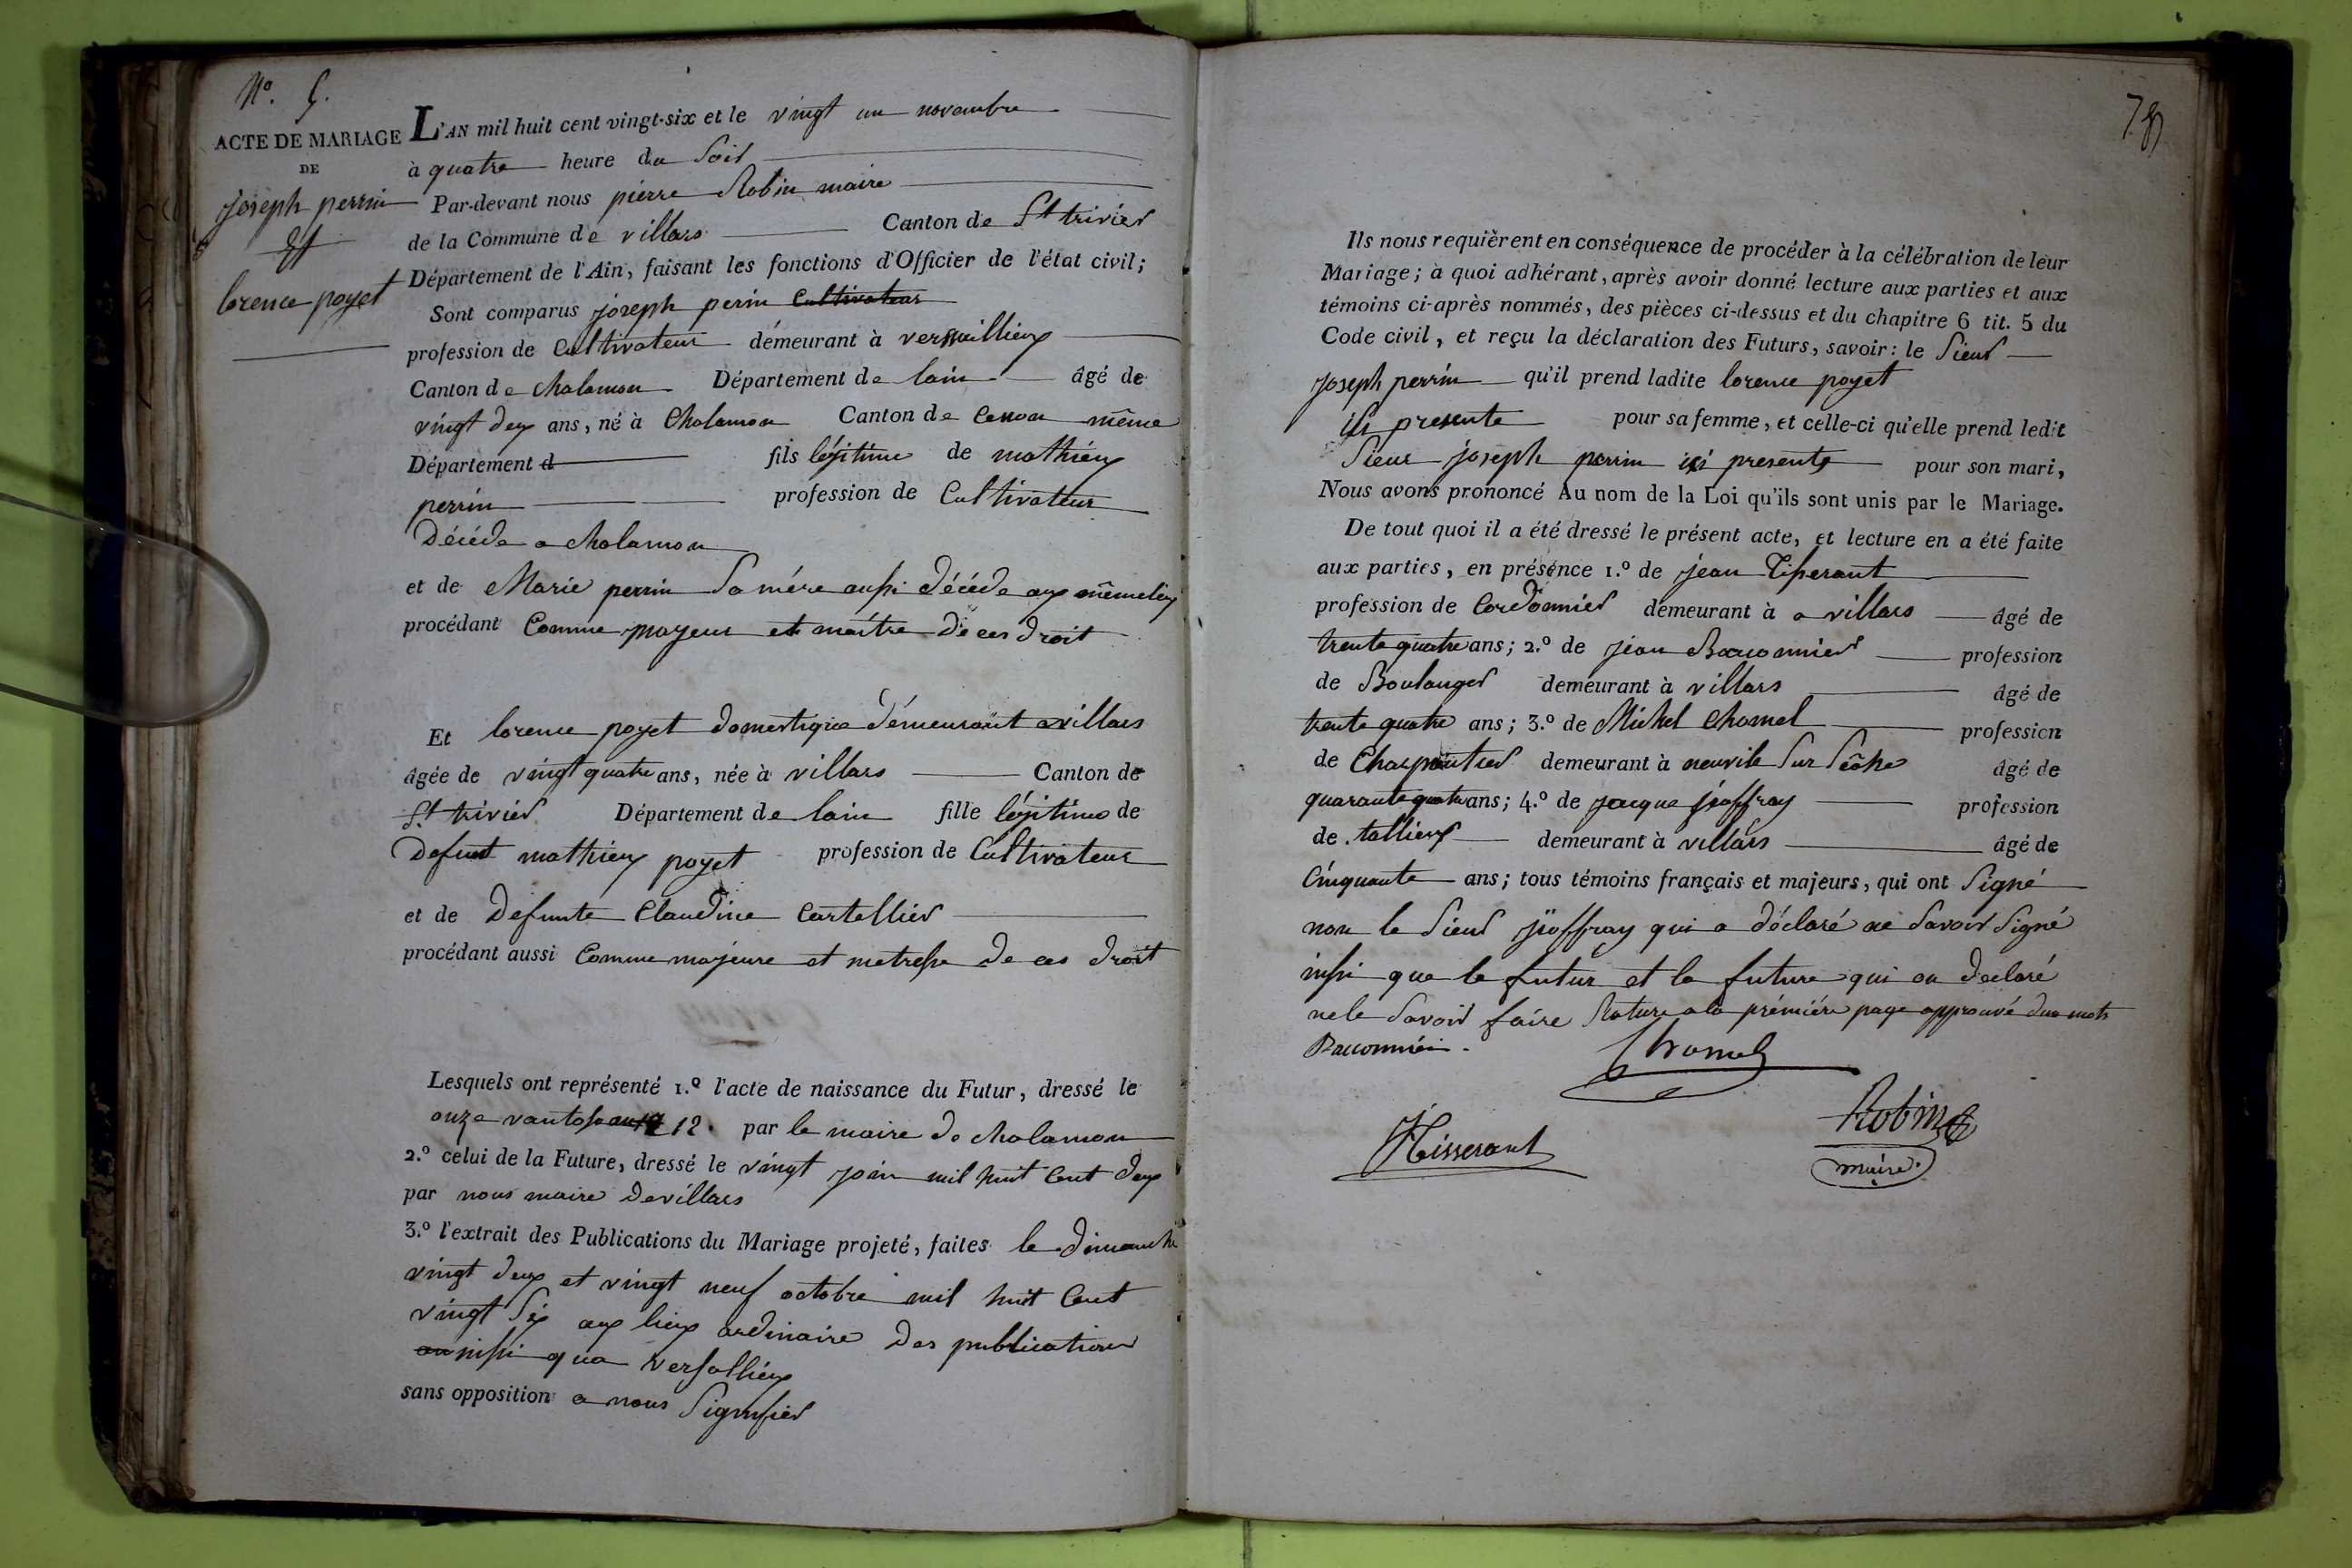 N°. 5.
ACTE DE MARIAGE
DE
joseph perrin
Et
lorence poyet
L'AN mil huit cent vingt-six et le vingt un novembre
à quatre heure du Soir
Par-devant nous pierre Robin maire
de la Commune de villars Canton de St trivier
Département de l'Ain, faisant les fonctions d'Officier de l'état civil;
Sont comparus joseph perin Cultivateur
profession de Cultivateur démeurant à versaillieux
Canton de chalamon Département de lain âgé de
vingt deux ans, né à Chalamon Canton de même
Département d fils légitime de mathieu
perrin profession de Cultivateur
Décéde a chalamon
et de Marie perrin Sa mére aussi décéde aux mêmelieux
procédant Comme majeur et maître de ces droit
Et lorence poyet domestique démeurant a villars
âgée de vingt quatre ans, née à villars Canton de
St trivier Département de lain fille légitime de
Defunt mathieu poyet profession de Cultivateur
et de Defunte Claudine Cartellier
procédant aussi Comme majeure et metresse de ces droit
Lesquels ont représenté 1.º l'acte de naissance du Futur, dressé le
onze vantose 12. par le maire de chalamon
2.º celui de la Future, dressé le vingt join mil huit Cent deux
par nous maire de villars
3.º l'extrait des Publications du Mariage projeté, faites le dimanche
vingt deux et vingt neuf octobre mil huit Cent
vingt Six aux lieux ordinaire des publication
inssi qua versallieux
sans opposition a nous Signifier
78
Ils nous requièrent en conséquence de procéder à la célébration de leur
Mariage; à quoi adhérant, après avoir donné lecture aux parties et aux
témoins ci-après nommés, des pièces ci-dessus et du chapitre 6 tit. 5 du
Code civil, et reçu la déclaration des Futurs, savoir: le Sieur
joseph perrin qu'il prend ladite lorence poyet
ici presente pour sa femme, et celle-ci qu'elle prend ledit
Sieur joseph perrin ici presente pour son mari,
Nous avons prononcé Au nom de la Loi qu'ils sont unis par le Mariage.
De tout quoi il a été dressé le présent acte, et lecture en a été faite
aux parties, en présence 1.º de jean Tisserant
profession de Cordonnier demeurant à a villars âgé de
trente quatre ans; 2.º de jean Baconnier profession
de Boulanger demeurant à villars âgé de
trente quatre ans; 3.º de Michel Chomel profession
de Charpentier demeurant à neuvile Sur Seône âgé de
quarante quatre ans; 4.º de jacque jioffray profession
de tallieux demeurant à villars âgé de
Cinquante ans; tous témoins français et majeurs, qui ont Signé
non le Sieur jioffray qui a déclaré ne Savoir Signé
inssi que le futur et la future qui on declaré
ne le Savoir faire Rature a la prémiére page approuvé deux mots
Bacconnier. Chomel
Robin
maire
JTisserant